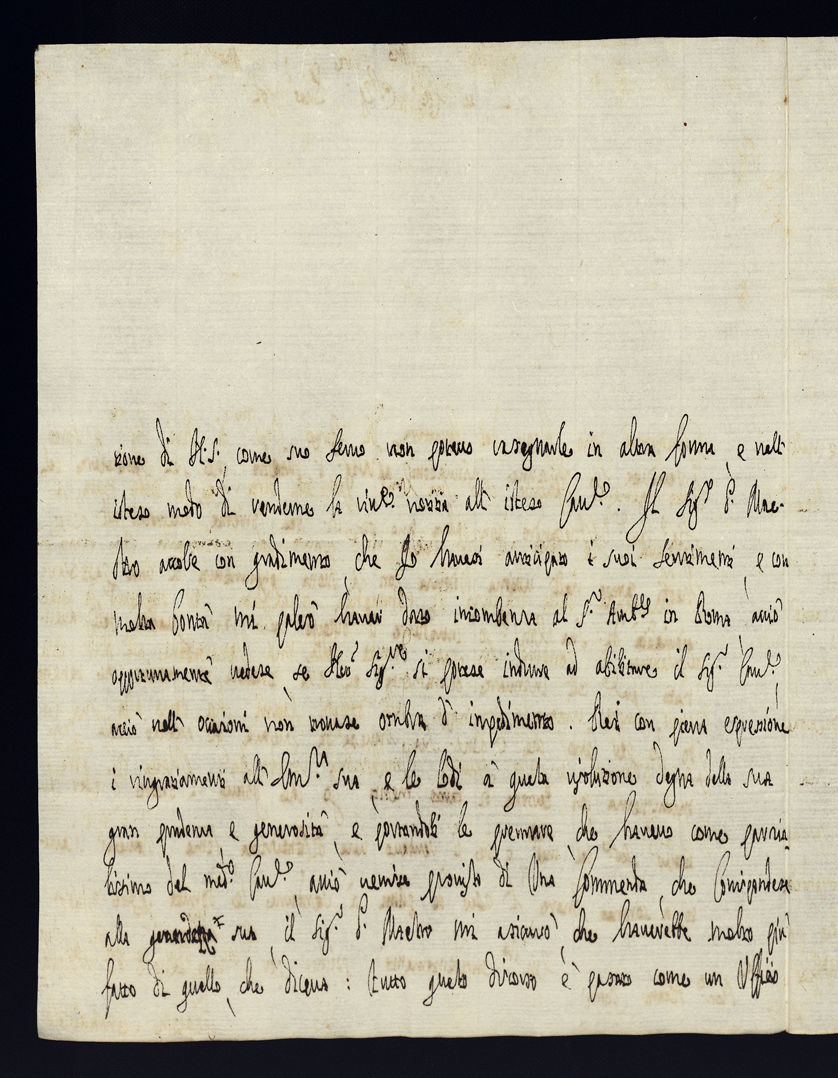 zione di V.S., come suo servo non potevo insegnarle in altra forma, e nell'
istesso modo di renderne la vine.ª notizia all'istesso Cav.re. Il Sig.r G. Mae-
stro accolse con gradimento, che Io havessi anticipato i suoi sentimenti, e con
molta bontà mi palesò havere dato incombenza al S.r Amb.re in Roma, acciò
opportunamente vedesse, se N.ro Sig.re si potesse indurre ad abilitare il Sig.r Cav.re,
acciò nell'occasioni non trovasse ombra d'impedimento. Resi con piena espressione
i ringraziamenti all'Em.za sua, e le lodi à questa risoluzione degna della sua
gran prudenza, e generosità, e portandoli le premure, che havevo come partia-
lissimo del med.o Cav.re, acciò venisse provisto di Una Commenda, che Corrispondesse
alla sua, il Sig.r G. Maestro mi assicurò, che haverebbe molto più
fatto di quello, che diceva: tutto questo discorso è passato come un Uffitio